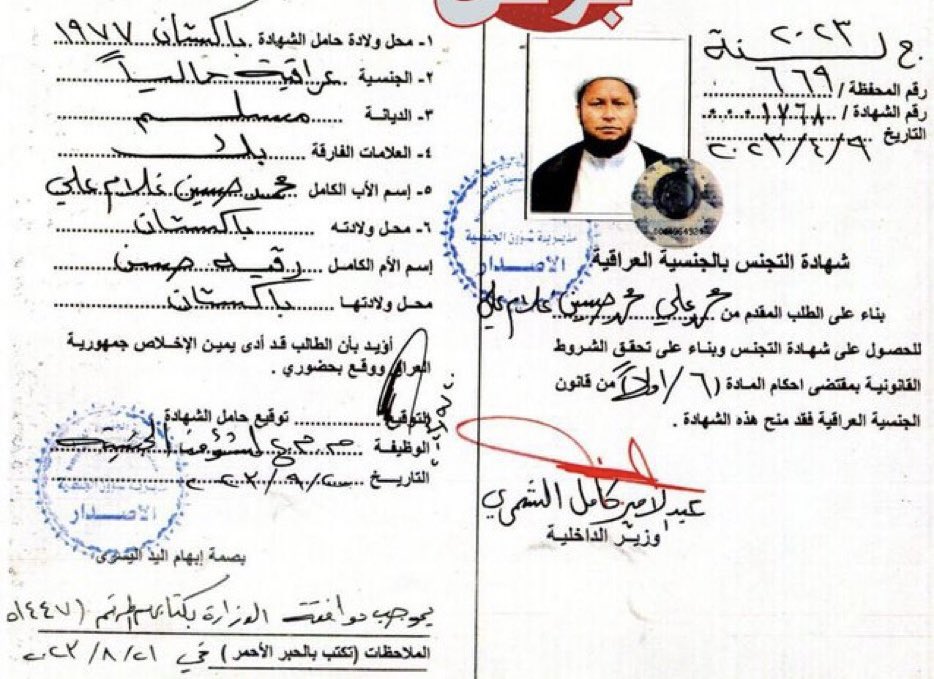 ج لسنة ٢٠٢٣
رقم المحفظة / ٦٦٩
رقم الشهادة / ٠٠٠١٧٦٨
التاريخ ٢٠٢٣/٤/٩
مديرية شؤون الجنسية
الأصدار
شهادة التجنس بالجنسية العراقية
بناء على الطلب المقدم من محمد علي محمد حسين غلام علي
للحصول على شهادة التجنس وبناء على تحقق الشروط
القانونية بمقتضى احكام المادة (٦/اولاً) من قانون
الجنسية العراقية فقد منح هذه الشهادة .
عبدالامير كامل الشمري
وزير الداخلية
١- محل ولادة حامل الشهادة باكستان ١٩٧٧
٢- الجنسية عراقية حالياً
٣- الديانة مسلم
٤- العلامات الفارقة بلا
٥- إسم الأب الكامل محمد حسين غلام علي
٦- محل ولادته باكستان
إسم الأم الكامل رقيه حسن
محل ولادتها باكستان
أؤيد بأن الطالب قد أدى يمين الإخلاص جمهورية
العراق ووقع بحضوري .
التوقيع توقيع حامل الشهادة
الوظيفة لشؤون الجنسية
التاريخ ٢٠٢٣/٩/
مديرية شؤون الجنسية
الأصدار
بصمة إبهام اليد اليسرى
بموجب موافقة الوزارة بكتابهم المرقم
الملاحظات (تكتب بالحبر الأحمر) في ٢٠٢٣/٨/٢١